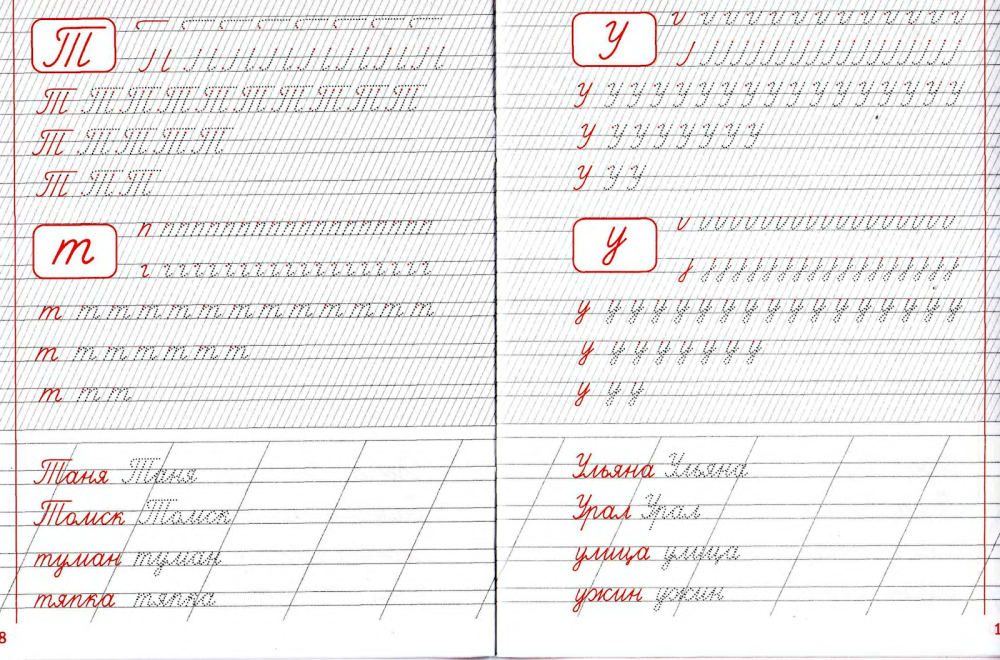 Т
Т Т Т Т Т Т Т Т Т Т
Т Т Т Т Т
Т Т Т
т
т т т т т т т т т т т т т
т т т т т т т
т т т
Таня Таня
Томск Томск
туман туман
тяпка тяпка
8
У
У У У У У У У У У У У У У У У У У
У У У У У У У У
У У У
у
у у у у у у у у у у у у у у у у у
у у у у у у у у
у у у
Ульяна Ульяна
Урал Урал
улица улица
ужин ужин